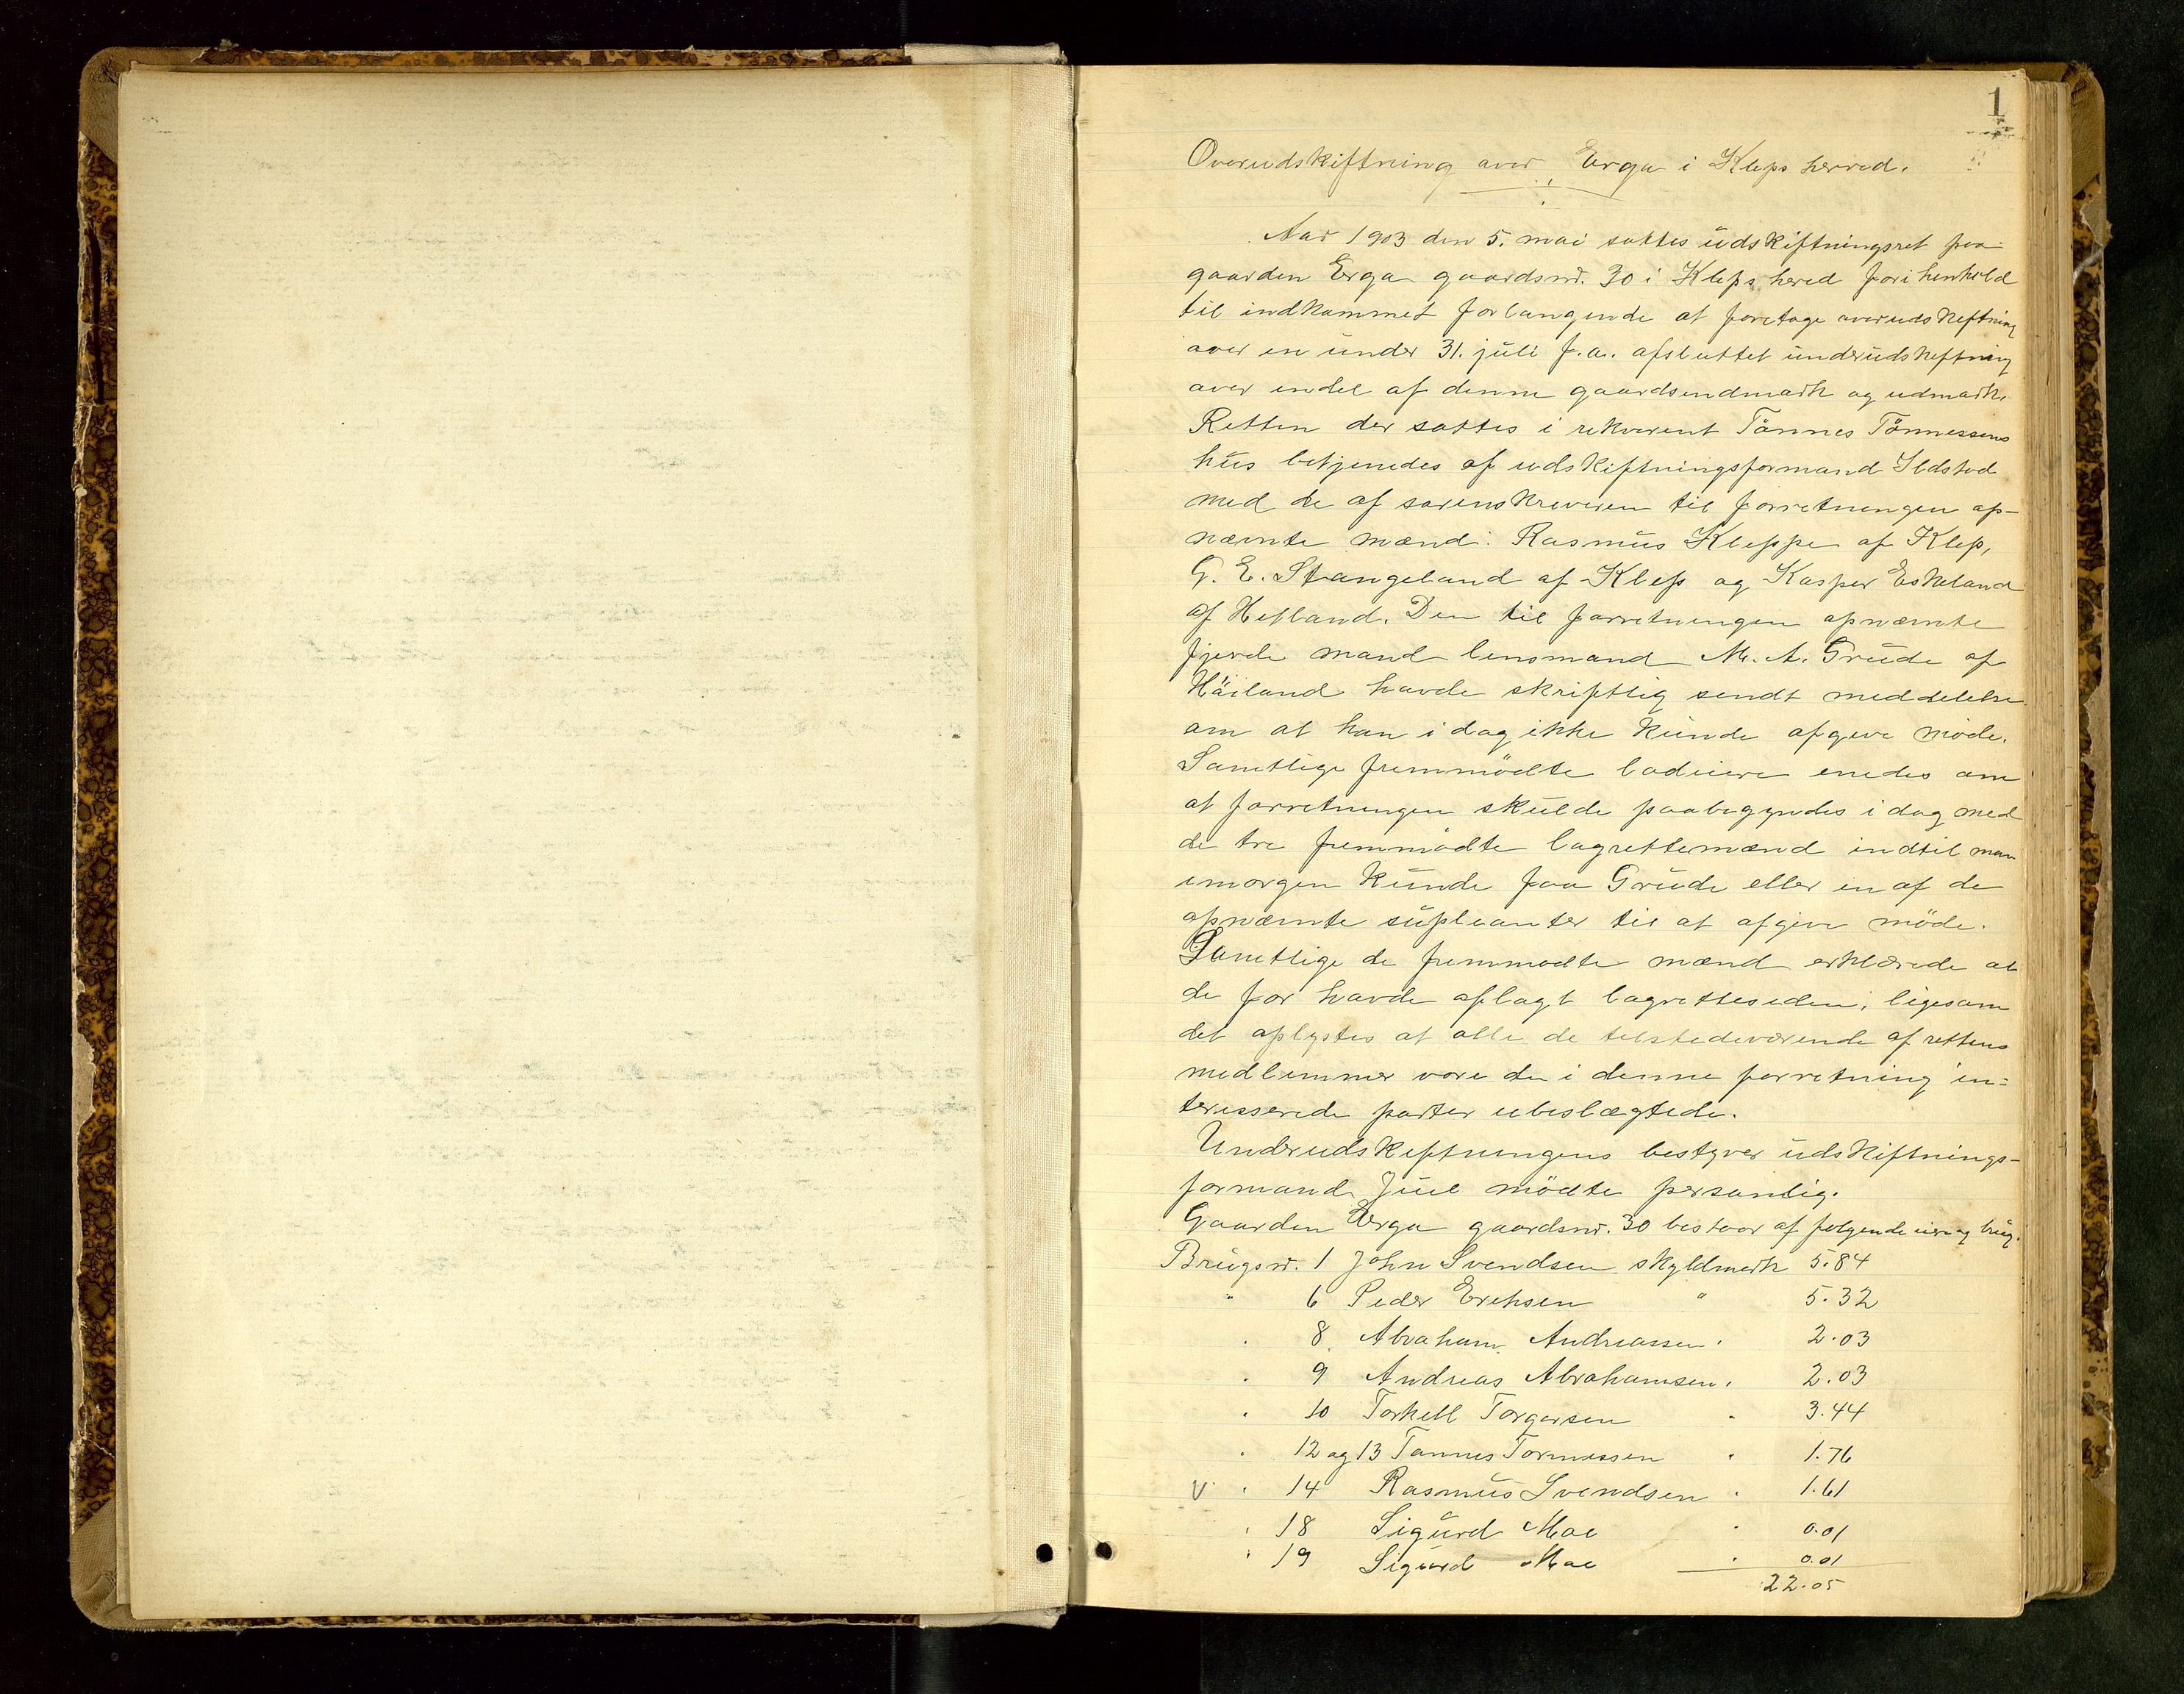 1
Overudskiftning over Erga i Kleps herred.
Aar 1903 den 5. mai sattes udskiftningsret paa
gaarden Erga gaardsnr. 30 i Kleps herred for i henhold
til indkommet forlangende at foretage overudskiftning
over en under 31. juli f.a. afsluttet underudskiftning
over endel af denne gaardsindmark og udmark.
Retten der sattes i rekvirent Tönnes Tönnessens
hus betjenedes af udskiftningsformand Ildstad
med de af sorenskriveren til forretningen op-
nævnte mænd: Rasmus Kleppe af Klep,
G. E. Stangeland af Klep og Kasper Eskeland
af Hetland. Den til forretningen opnævnte
fjerde mand lensmand M. A. Grude af
Höiland havde skriftlig sendt meddelelse
om at han i dag ikke kunde afgive möde.
Samtlige fremmödte lodeiere enedes om
at forretningen skulde paabegyndes i dag med
de tre fremmödte lagrettemænd indtil man
imorgen kunde faa Grude eller en af de
opnævnte supleanter til at afgive möde.
Samtlige de fremmödte mænd erklærede at
de för havde aflagt lagretteseden, ligesom
det oplystes at alle de tilstedeværende af rettens
medlemmer vare de i denne forretning in-
teresserede parter ubeslægtede.
Underudskiftningens bestyrer udskiftnings-
formand Juel mödte personlig.
Gaarden Erga gaardsnr. 30 bestaar af fölgende eiere og brug.
Brugsnr. 1 John Svendsen skyldmark 5.84
" 6 Peder Eriksen " 5.32
" 8 Abraham Andreassen " 2.03
" 9 Andreas Abrahamsen " 2.03
" 10 Torkell Torgersen " 3.44
" 12 og 13 Tönnes Tönnessen " 1.76
V " 14 Rasmus Svendsen " 1.61
" 18 Sigurd Moe " 0.01
" 19 Sigurd Moe " 0.01
22.05